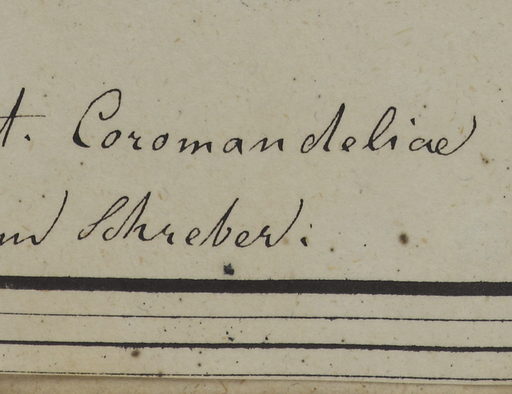 t. Coromandeliae
Schreber.